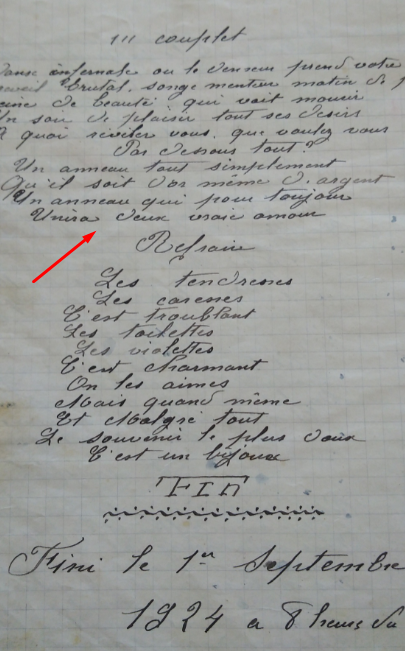 III couplet
Danse infernale ou le danseur prend votre
reveil brutal, songe menteur matin de
reine de beauté qui vait mourir
Un son de plaisir tout ses desirs
A quoi rêveler vous, que voulez vous
Par dessous tout?
Un anneau tout simplement
Qu'il soit d'or même d'argent
Un anneau qui pour toujour
Unira deux vraie amour
Refrain
Les tendresses
Les caresses
C'est troublant
Les toilettes
Les violettes
C'est charmant
On les aimes
Mais quand même
Et Malgré tout
Le souvenir le plus doux
C'est un bijoux
FIN
Fini le 1er Septembre
1924 a 8 heures du